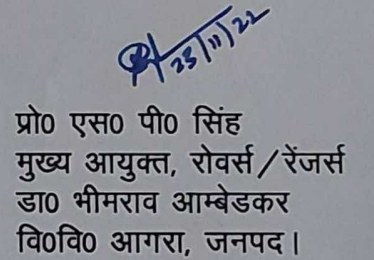 23/11/22
प्रो0 एस0 पी0 सिंह
मुख्य आयुक्त, रोवर्स/रेंजर्स
डा0 भीमराव आम्बेडकर
वि0वि0 आगरा, जनपद।